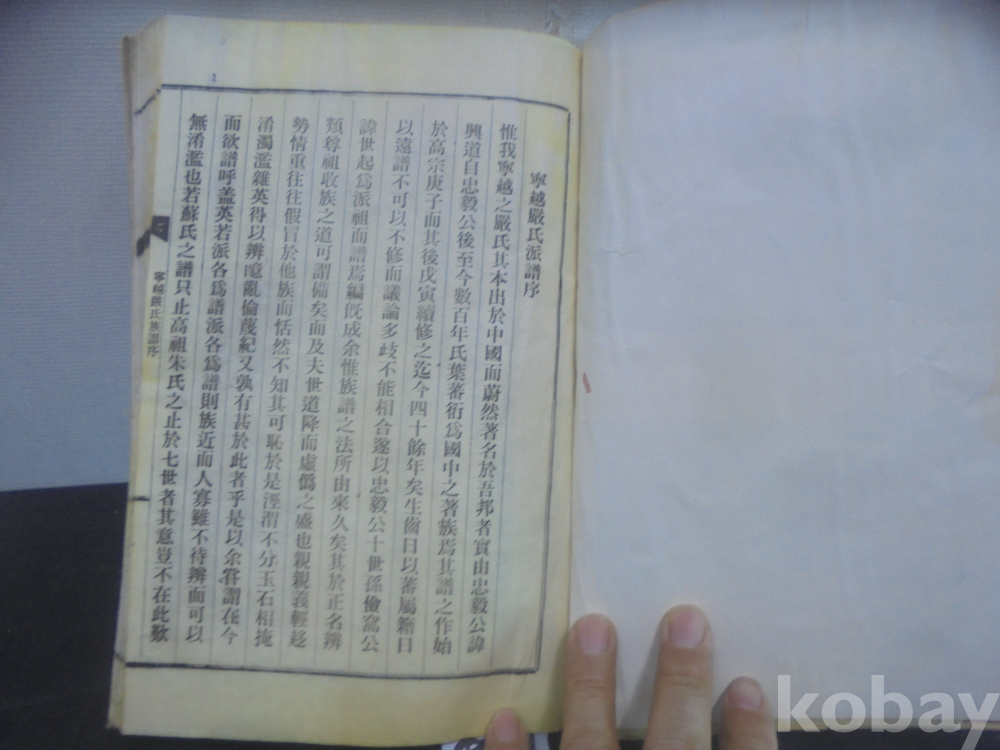 寧越嚴氏派譜序
惟我寧越之嚴氏其本出於中國而蔚然著名於吾邦者實由忠毅公諱
興道自忠毅公後至今數百年氏葉蕃衍爲國中之著族焉其譜之作始
於高宗庚子而其後戊寅續修之迄今四十餘年矣生齒日以蕃屬籍日
以遠譜不可以不修而議論多歧不能相合遂以忠毅公十世孫儉窩公
諱世起爲派祖而譜焉編旣成余惟族譜之法所由來久矣其於正名辨
類尊祖收族之道可謂備矣而及夫世道降而虛僞之盛也親親義輕趍
勢情重往往假冒於他族而恬然不知其可恥於是涇渭不分玉石相掩
淆濁濫雜英得以辨噫亂倫蔑紀又孰有甚於此者乎是以余嘗謂在今
而欲譜呼盖英若派各爲譜派各爲譜則族近而人寡雖不待辨而可以
無淆濫也若蘇氏之譜只止高祖朱氏之止於七世者其意豈不在此歟
寧越嚴氏族譜序
1
kobay